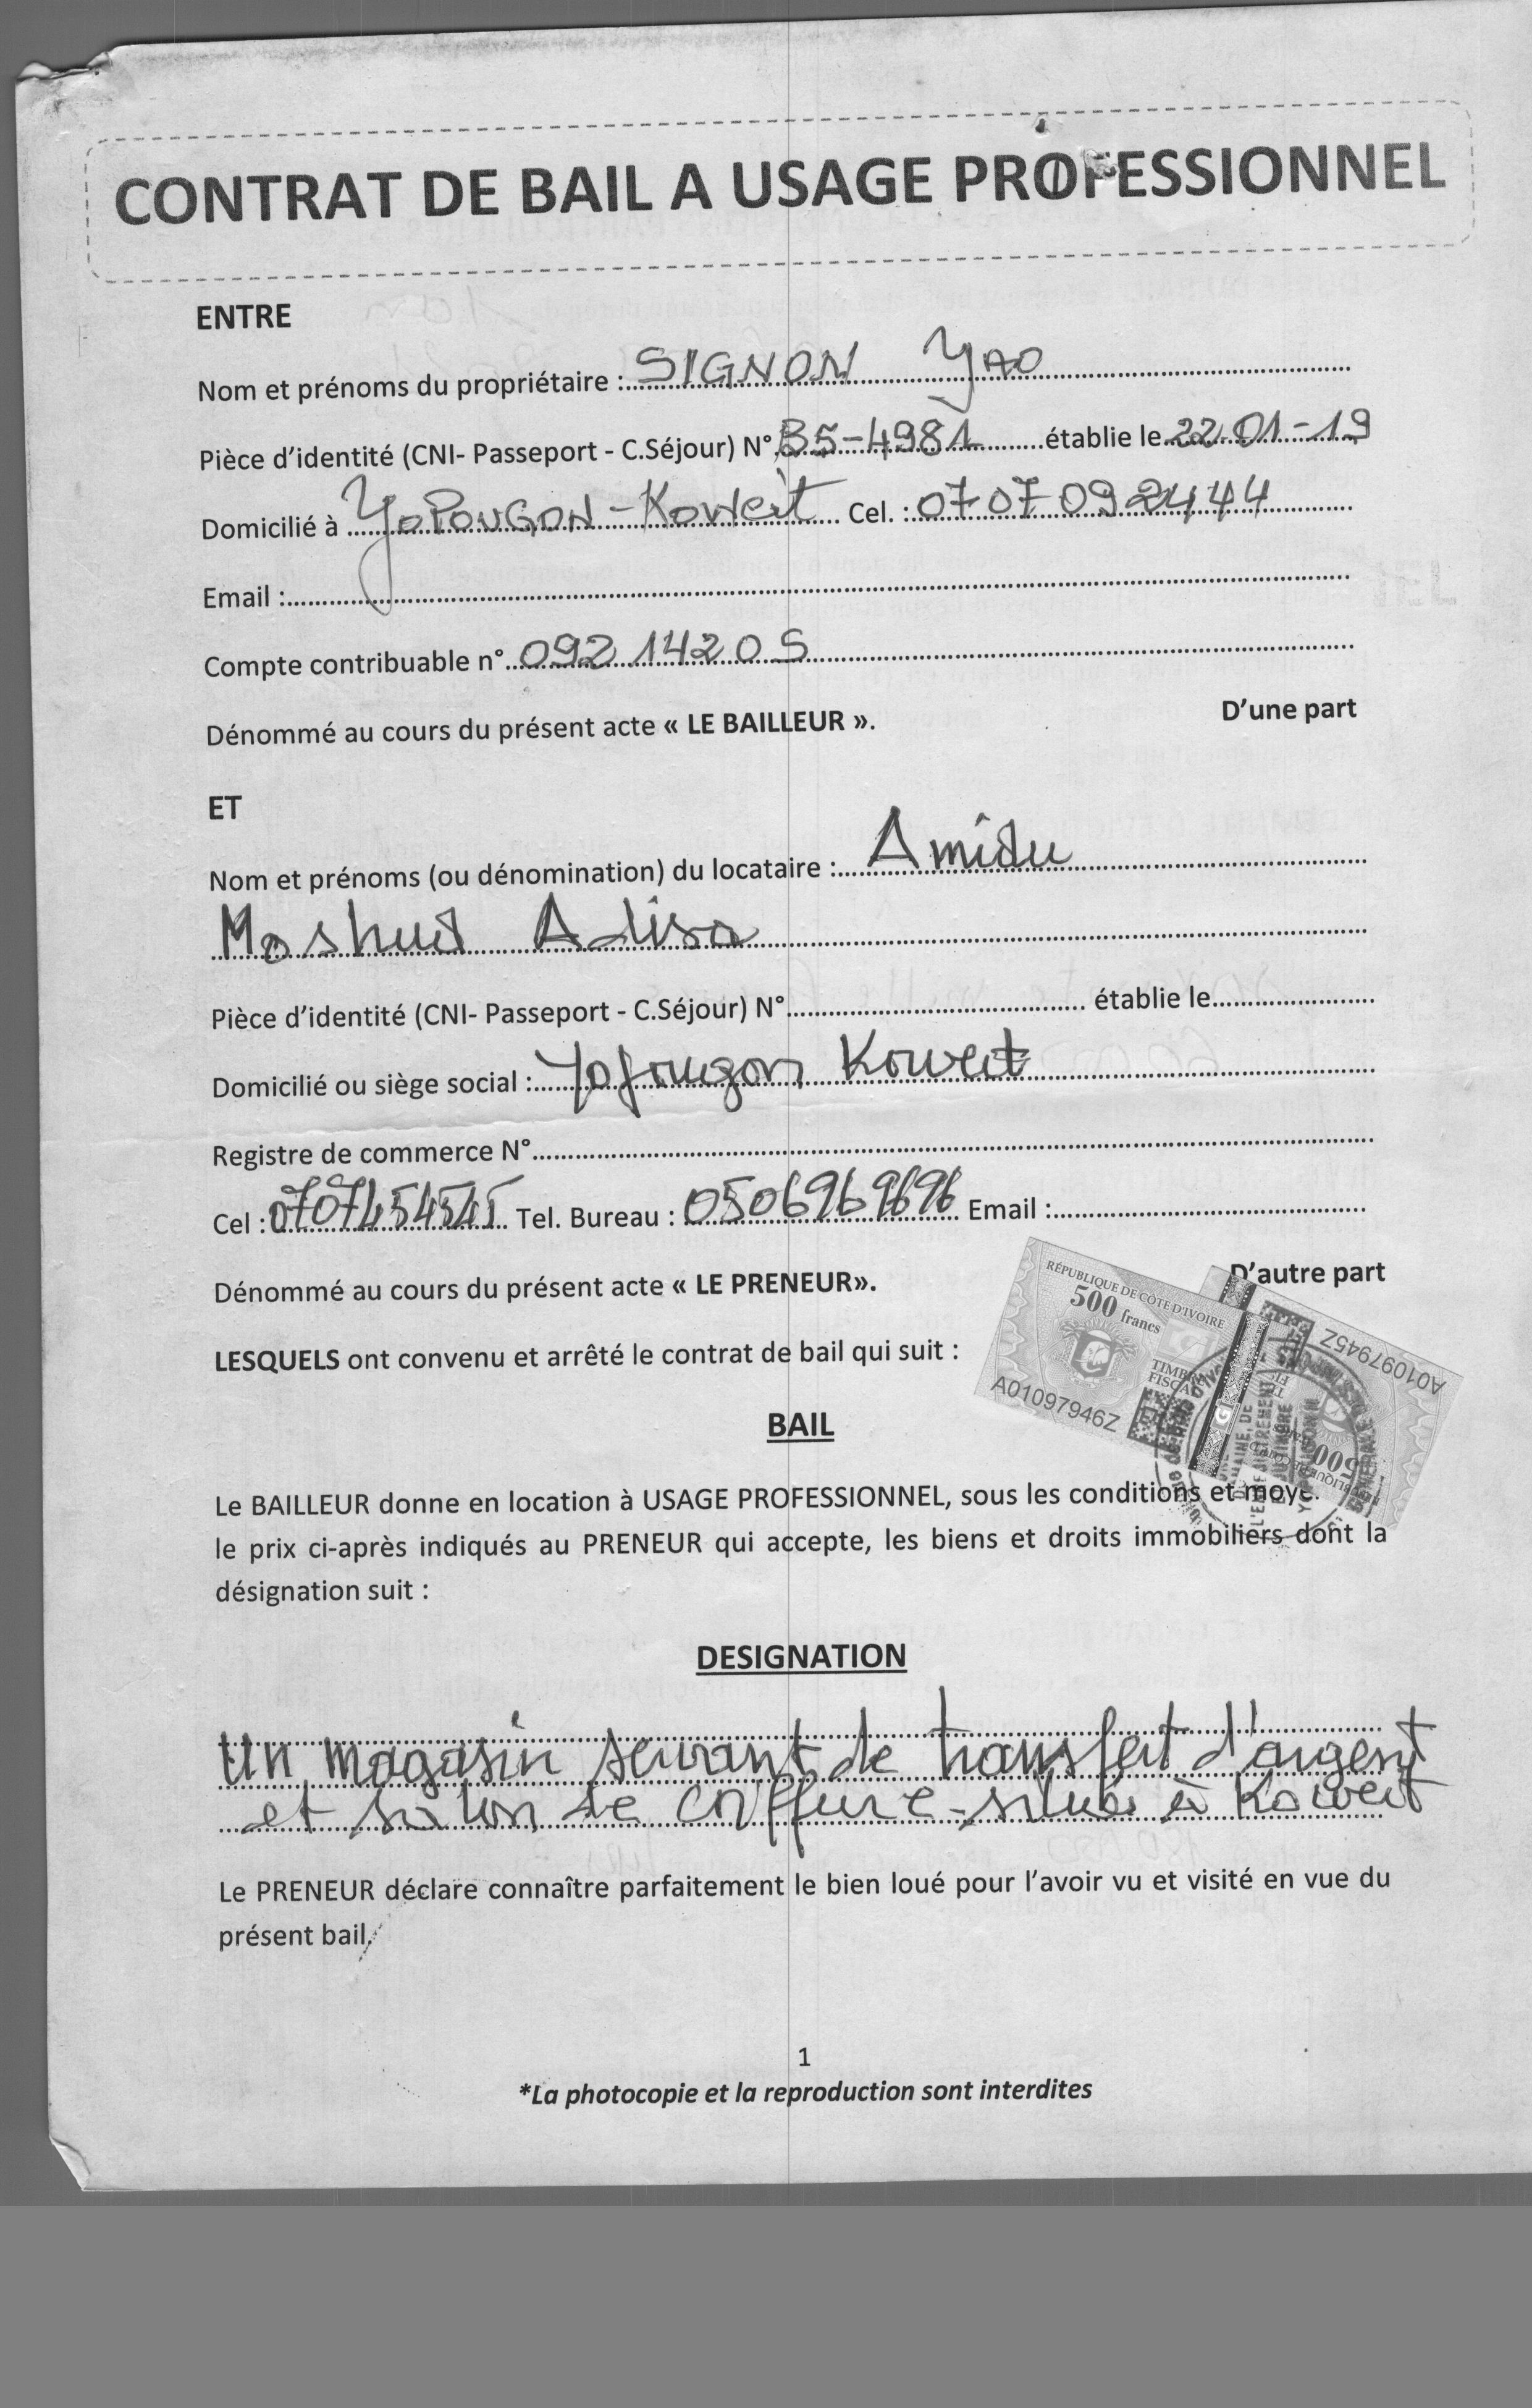 CONTRAT DE BAIL A USAGE PROFESSIONNEL
ENTRE
Nom et prénoms du propriétaire : SIGNON YAO
Pièce d'identité (CNI- Passeport - C.Séjour) N° B5-4981 établie le 22-01-19
Domicilié à YOPOUGON-KOWeit Cel. : 07 07 09 24 44
Email :
Compte contribuable n° 092 1420 S
Dénommé au cours du présent acte « LE BAILLEUR ». D'une part
ET
Nom et prénoms (ou dénomination) du locataire : Amidu
Moshud Adisa
Pièce d'identité (CNI- Passeport - C.Séjour) N° établie le
Domicilié ou siège social : Yopougon Koweit
Registre de commerce N°
Cel : 0707454545 Tel. Bureau : 0506969696 Email :
Dénommé au cours du présent acte « LE PRENEUR». D'autre part
RÉPUBLIQUE DE CÔTE D'IVOIRE
500 francs
TIMBRE
FISCAL
A01097946Z
A01097945Z
LESQUELS ont convenu et arrêté le contrat de bail qui suit :
BAIL
Le BAILLEUR donne en location à USAGE PROFESSIONNEL, sous les conditions et
le prix ci-après indiqués au PRENEUR qui accepte, les biens et droits immobiliers dont la
désignation suit :
DESIGNATION
Un magasin servant de transfert d'argent
et salon de coiffure situé à Koweit
Le PRENEUR déclare connaître parfaitement le bien loué pour l'avoir vu et visité en vue du
présent bail.
1
*La photocopie et la reproduction sont interdites